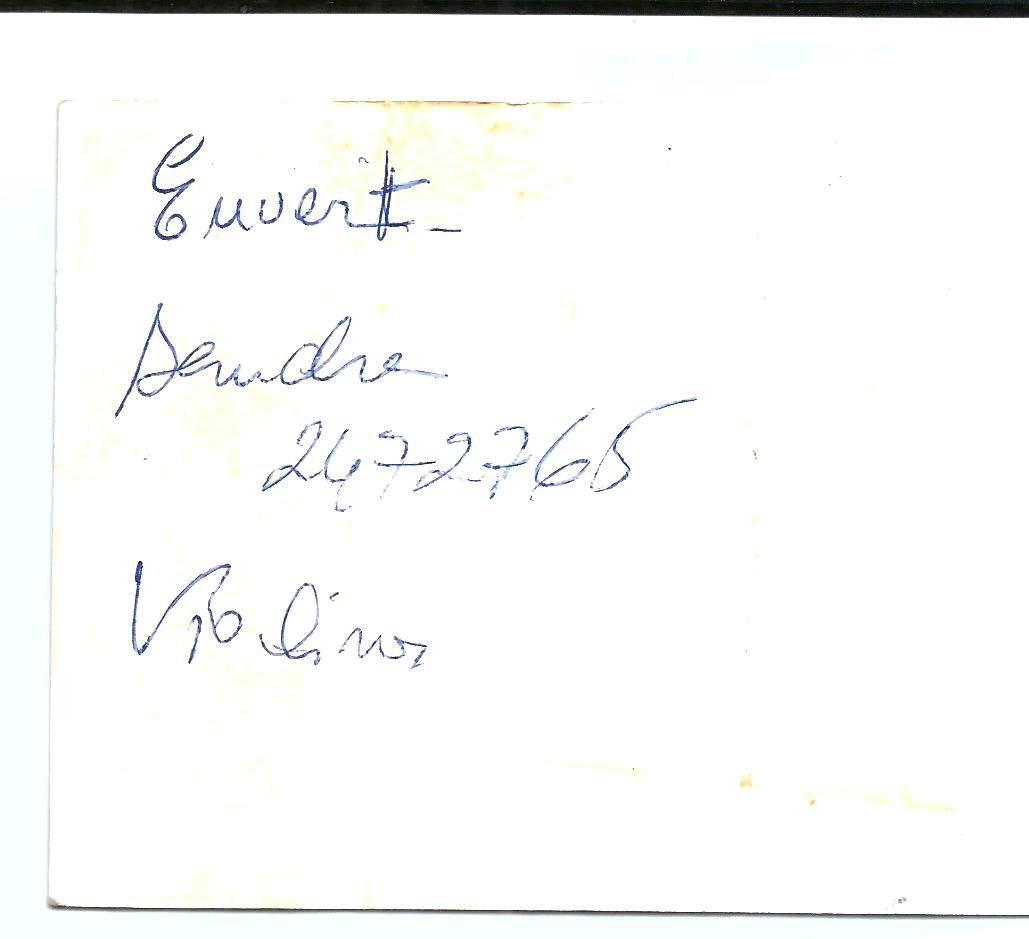 Euvert
Sandra
2472765
Violinos